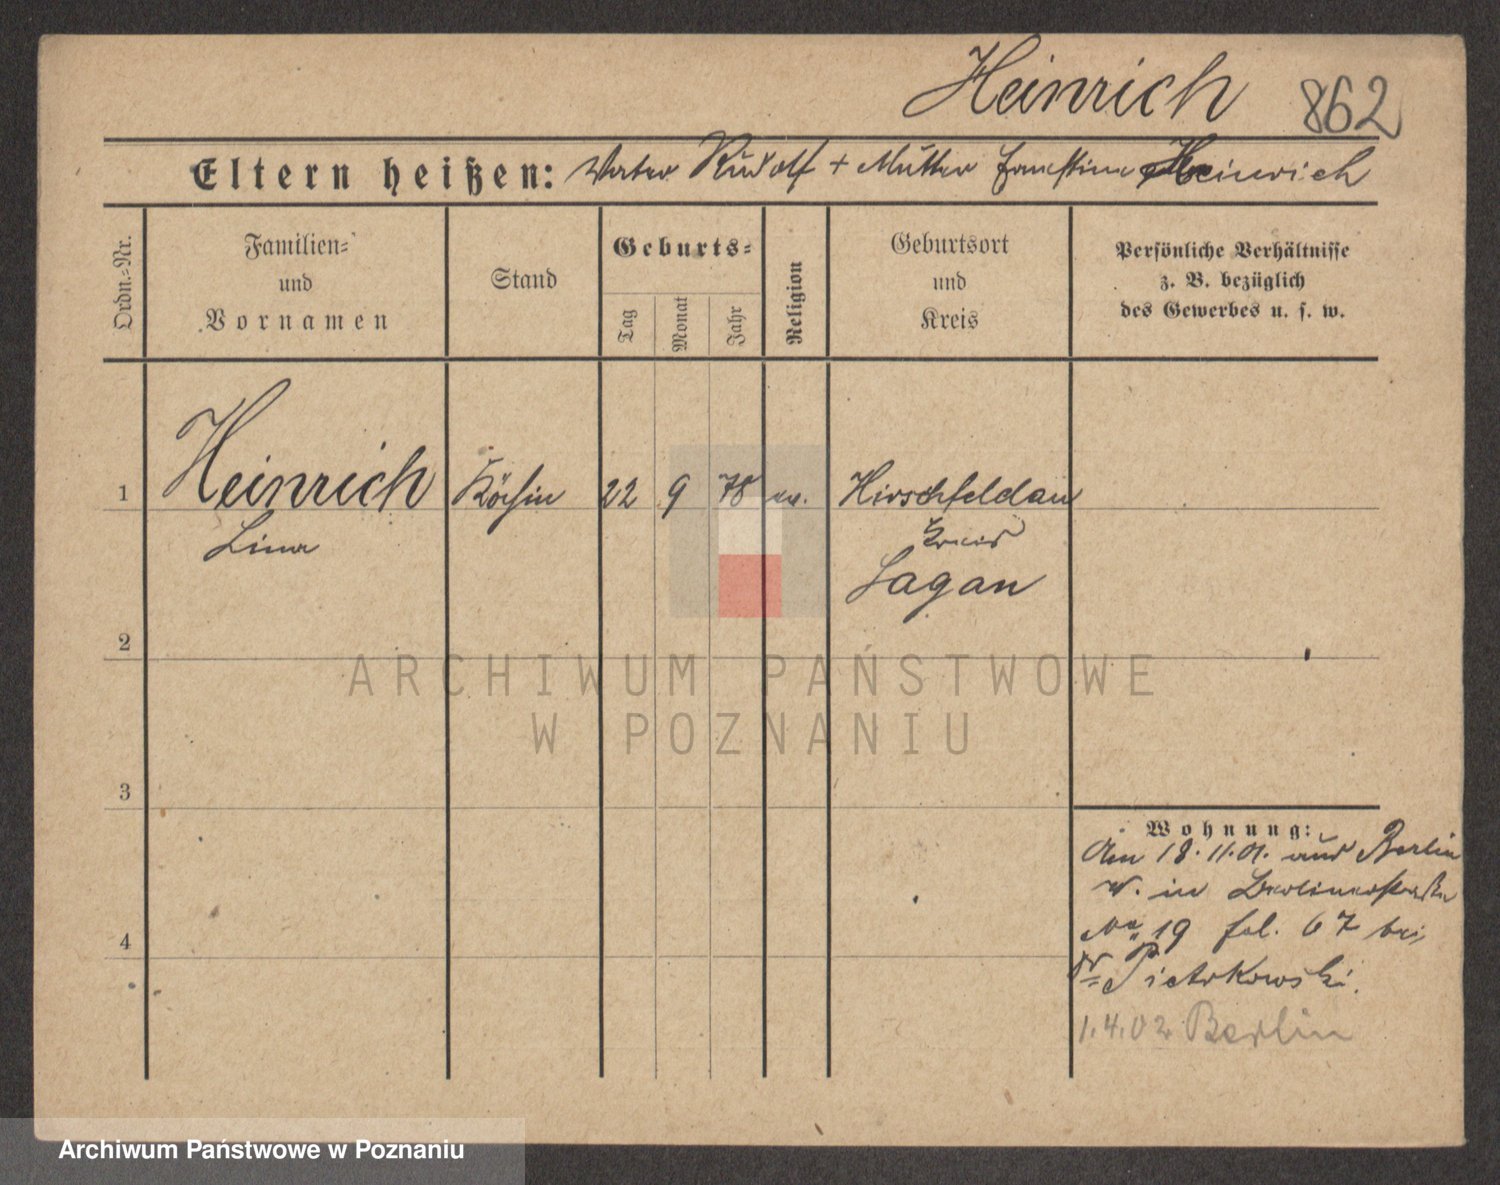 Heinrich 862
Eltern heißen: Vater Rudolf + Mutter Ernestine Heinrich
Ordn.=Nr.
Familien=
und
Vornamen
Stand
Geburts=
Tag
Monat
Jahr
Religion
Geburtsort
und
Kreis
Persönliche Verhältnisse
z. B. bezüglich
des Gewerbes u. s. w.
1 Heinrich Köchin 22 9 78 ev. Hirschfeldau
Lina Kreis
Sagan
2
3
4
Wohnung:
Am 18.11.01. aus Berlin
w. in Berlinerstraße
No 19 fol. 67 bei
Dr Pietrkowski.
1.4.02 Berlin
ARCHIWUM PAŃSTWOWE
W POZNANIU
Archiwum Państwowe w Poznaniu